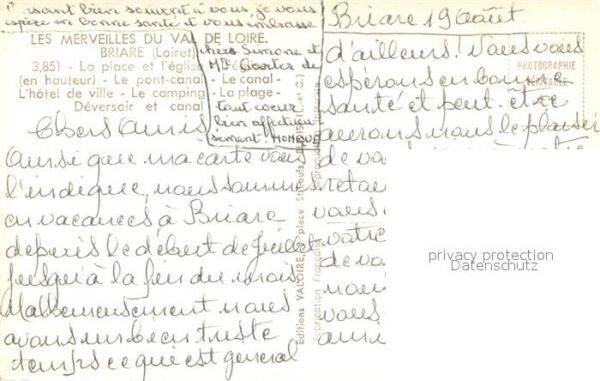 Pensant bien souvent à vous je vous
espère en bonne santé et vous embrasse
LES MERVEILLES DU VAL DE LOIRE
BRIARE (Loiret)
3.851 - La place et l'église
(en hauteur) - Le pont-canal - Le canal -
L'hôtel de ville - Le camping - La plage -
Déversoir et canal
chers Simone et
tout coeur
bien affectueu
sement. Monique
Chers Amis
Ainsi que ma carte vous
l'indique, nous sommes
en vacances à Briare
depuis le début de Juillet
jusqu'à la fin du mois
Malheureusement nous
avons eu bien triste
temps ce qui est général
Editions VALOIRE, place St-Louis, BLOIS (L.-et-C.)
Fabrication Française
Briare 19 août
d'ailleurs! Nous vous
espérons en bonne
santé et peut-être
aurons nous le plaisir
de
vous
de
nous
vous
PHOTOGRAPHIE
VÉRITABLE
privacy protection
Datenschutz